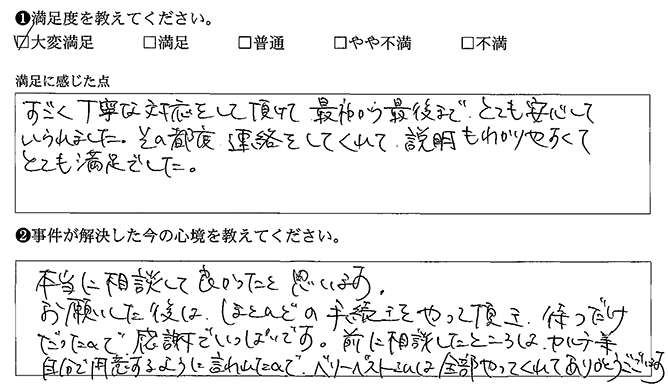 ❶満足度を教えてください。
☑大変満足 □満足 □普通 □やや不満 □不満
満足に感じた点
すごく丁寧な対応をして頂けて 最初から最後まで、とても安心して
いられました。その都度、連絡をしてくれて、説明もわかりやすくて
とても満足でした。
❷事件が解決した今の心境を教えてください。
本当に相談して良かったと思います。
お願いした後は、ほとんどの手続きをやって頂き、待つだけ
だったので感謝でいっぱいです。前に相談したところは、カルテ等
自分で用意するように言われたので、ベリーベストさんは全部やってくれてありがとうございます